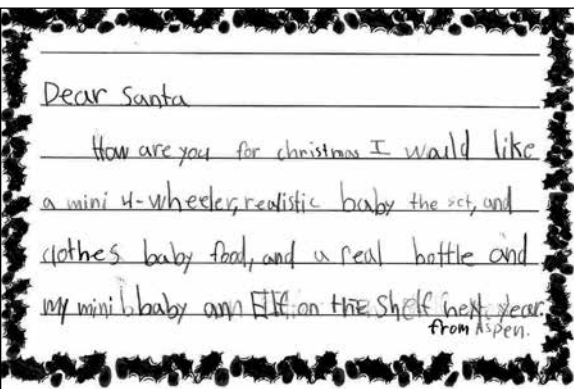 Dear Santa
How are you for christmas I would like
a mini 4-wheeler, realistic baby the set, and
clothes baby food, and a real bottle and
my mini baby an Elf on the Shelf next year.
from Aspen.